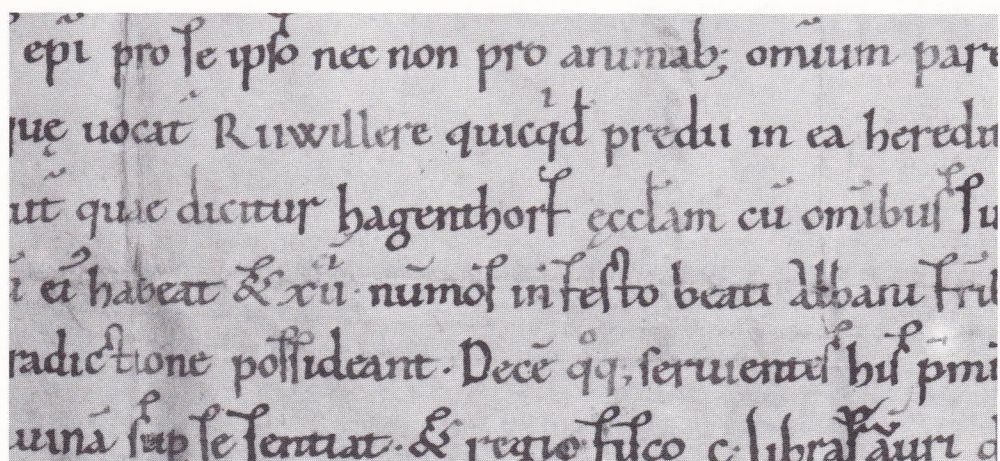 epī pro se ipso nec non pro animab; omīum par
quę uocat̄ Ruwillere quicqd predii in ea heredi
ut̄ quae dicitur hagenthorf ęcclam cū omībus su
ei habeat & xii numos in festo beati albani
radictione possideant. Decē qq; seruientes his pmi
uinā sup se sentiat. & regio fisco c. libras auri